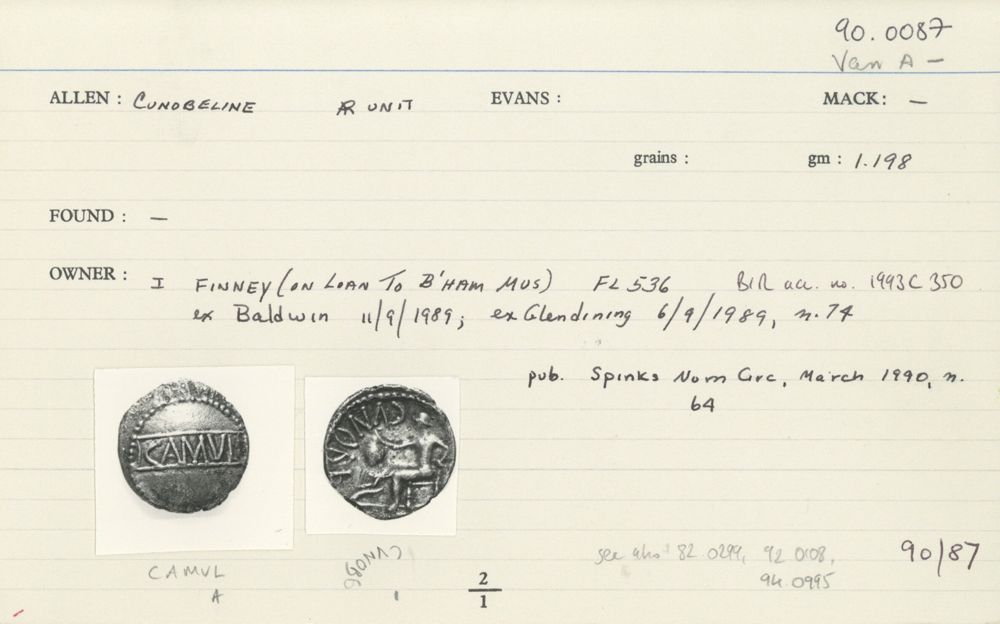 90.0087
Van A –
ALLEN : CUNOBELINE AR UNIT EVANS : MACK: –
grains : gm : 1.198
FOUND : –
OWNER : I FINNEY (ON LOAN TO B'HAM MUS) FL 536 BIR acc. no. 1993 C 350
ex Baldwin 11/9/1989; ex Glendining 6/9/1989, n. 74
pub. Spinks Num Circ, March 1990, n.
64
CAMVL
CVNOB
see also 82.0299, 92.0108,
94.0995
90/87
CAMVL
A
2
1